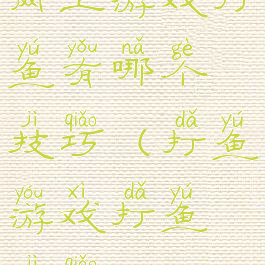 上游戏打
yú yǒu nǎ gè
鱼有哪个
jì qiǎo dǎ yú
技巧（打鱼
yóu xì dǎ yú
游戏打鱼
jì qiǎo